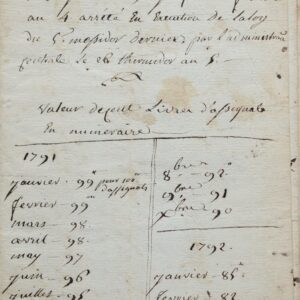 au 4 arrêté en Execution de la loy
du 5 messidor dernier par l'administration
centrale le 26 thermidor an 5
valeur de cent Livres d'assignats
En numeraire
1791
janvier - 99" pour 100" d'assignats
fevrier 99"
mars - 98
avril - 98
may - 97
juin - 96
juillet - 95
8bre - 92"
9bre - 91
xbre - 90
1792
janvier - 85"
fevrier - 82